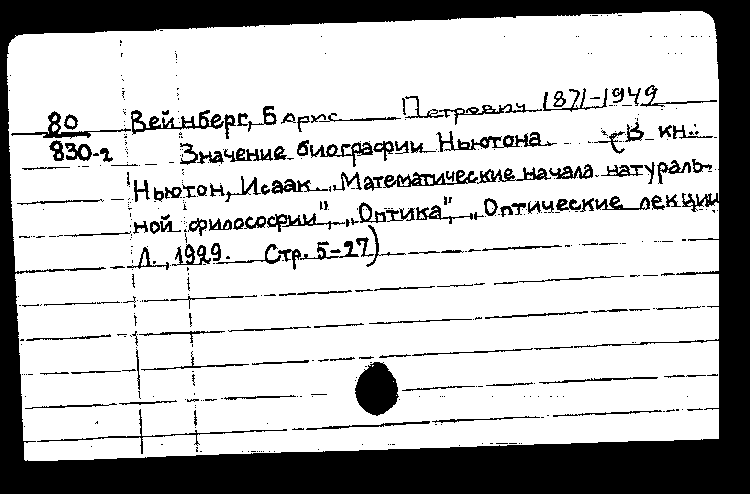 80 Вейнберг, Борис Петрович 1871-1949
830-2 Значение биографии Ньютона. (В кн.:
Ньютон, Исаак. „Математические начала натураль-
ной философии", „Оптика", „Оптические лекции
Л., 1929. Стр. 5-27)